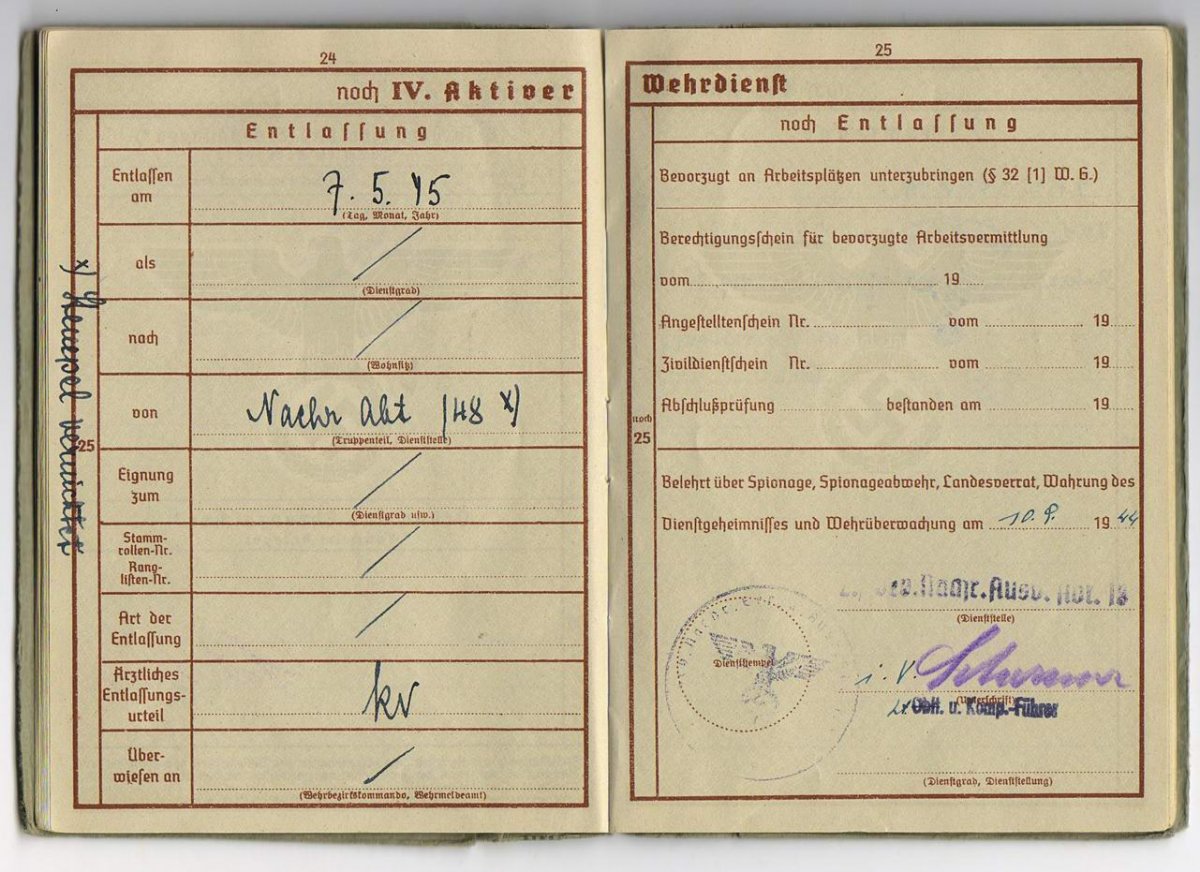 24
noch IV. Aktiver
Entlassung
Entlassen
am
7. 5. 45
(Tag, Monat, Jahr)
als
(Dienstgrad)
nach
(Wohnsitz)
von
Nachr Abt 148 x)
(Truppenteil, Dienststelle)
25
Eignung
zum
(Dienstgrad usw.)
Stamm-
rollen-Nr.
Rang-
listen-Nr.
Art der
Entlassung
Ärztliches
Entlassungs-
urteil
kv
Über-
wiesen an
(Wehrbezirkskommando, Wehrmeldeamt)
x) Stempel vernichtet
25
Wehrdienst
noch Entlassung
Bevorzugt an Arbeitsplätzen unterzubringen (§ 32 [1] W. G.)
Berechtigungsschein für bevorzugte Arbeitsvermittlung
vom 19
Angestelltenschein Nr. vom 19
Zivildienstschein Nr. vom 19
Abschlußprüfung bestanden am 19
noch
25
Belehrt über Spionage, Spionageabwehr, Landesverrat, Wahrung des
Dienstgeheimnisses und Wehrüberwachung am 10. 9. 1944
Nachr. Ausb. Abt. 18
(Dienststelle)
Dienststempel
i. V.
(Unterschrift)
Oblt. u. Komp.-Führer
(Dienstgrad, Dienststellung)